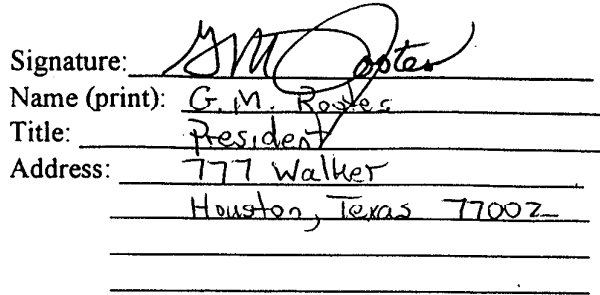 Signature: GM
Name (print): G. M.
Title: President
Address: 777 Walker
Houston, Texas 77002